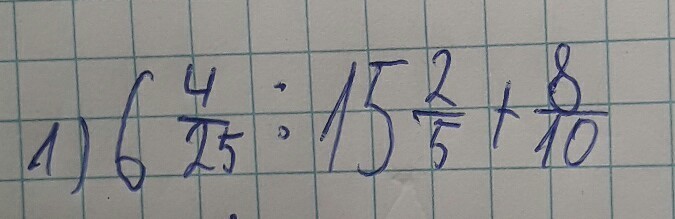 1) 6 4/25 : 15 2/5 + 8/10